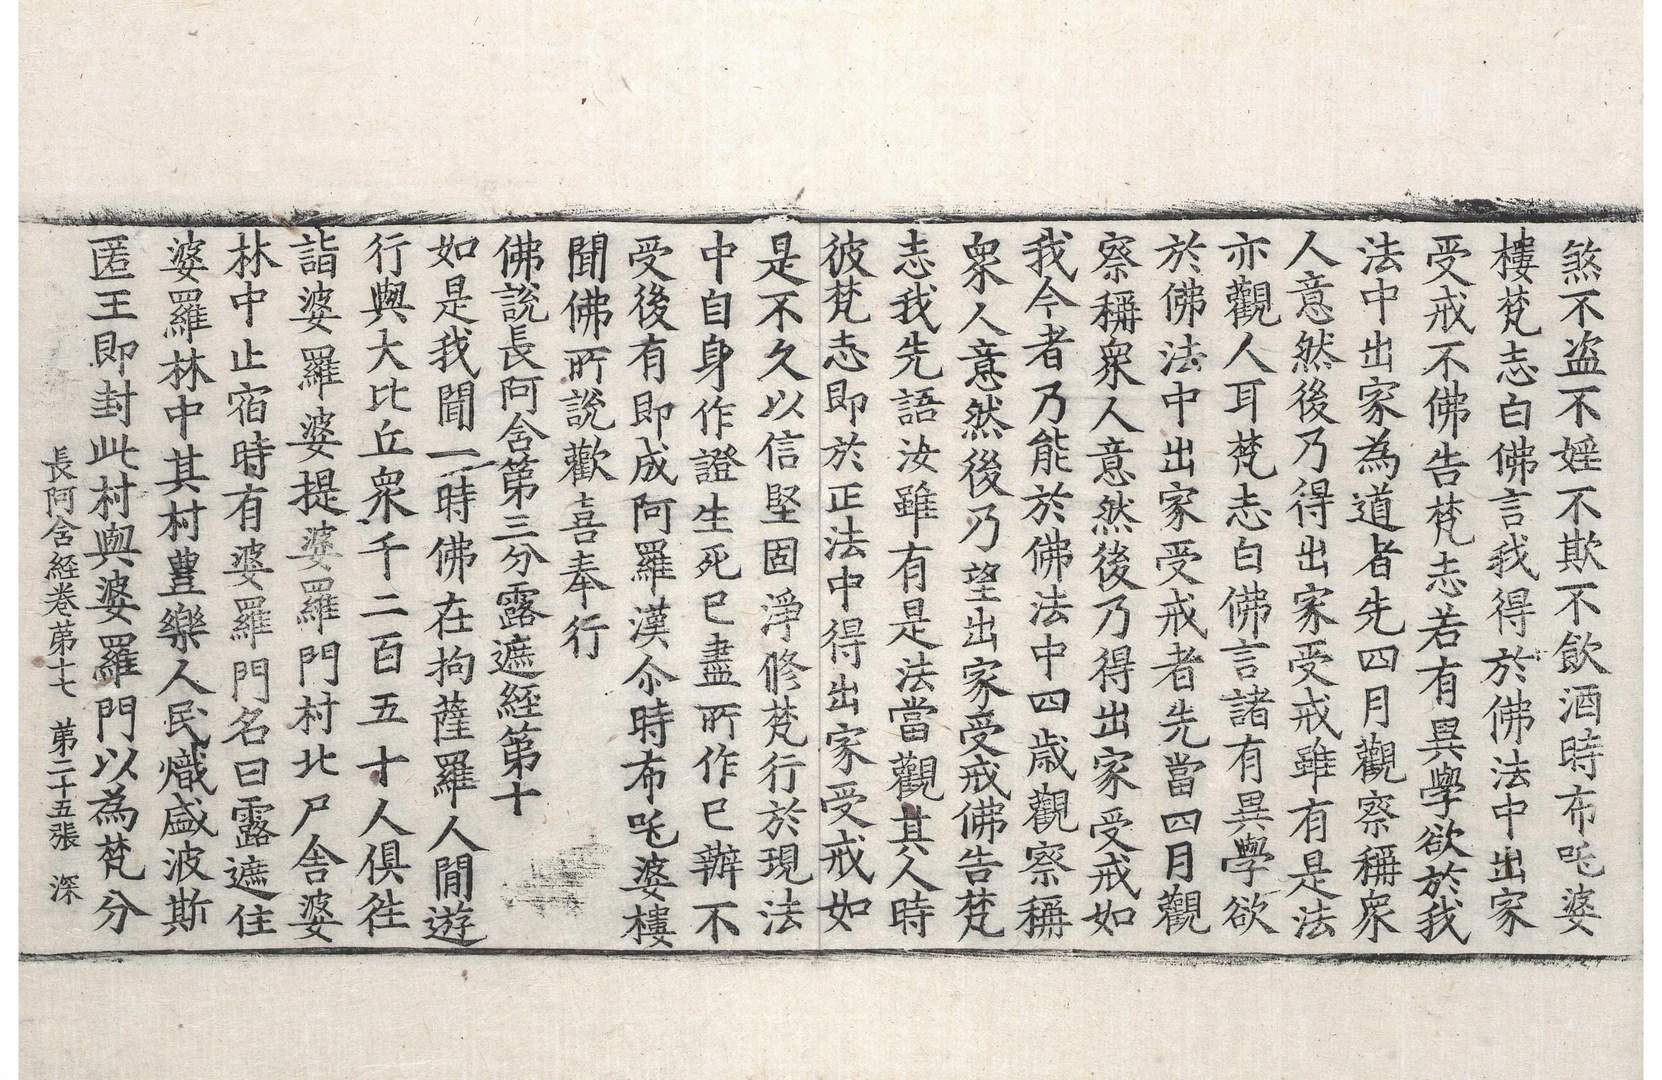 煞不盗不婬不欺不飲酒時布吒婆
樓梵志白佛言我得於佛法中出家
受戒不佛告梵志若有異學欲於我
法中出家為道者先四月觀察稱衆
人意然後乃得出家受戒雖有是法
亦觀人耳梵志白佛言諸有異學欲
於佛法中出家受戒者先當四月觀
察稱衆人意然後乃得出家受戒如
我今者乃能於佛法中四歲觀察稱
衆人意然後乃望出家受戒佛告梵
志我先語汝雖有是法當觀其人時
彼梵志即於正法中得出家受戒如
是不久以信堅固淨修梵行於現法
中自身作證生死已盡所作已辦不
受後有即成阿羅漢尒時布吒婆樓
聞佛所說歡喜奉行
佛說長阿含第三分露遮經第十
如是我聞一時佛在拘薩羅人間遊
行與大比丘衆千二百五十人俱往
詣婆羅婆提婆羅門村北尸舍婆
林中止宿時有婆羅門名曰露遮住
婆羅林中其村豊樂人民熾盛波斯
匿王即封此村與婆羅門以為梵分
長阿含經卷第十七　第二十五張　深